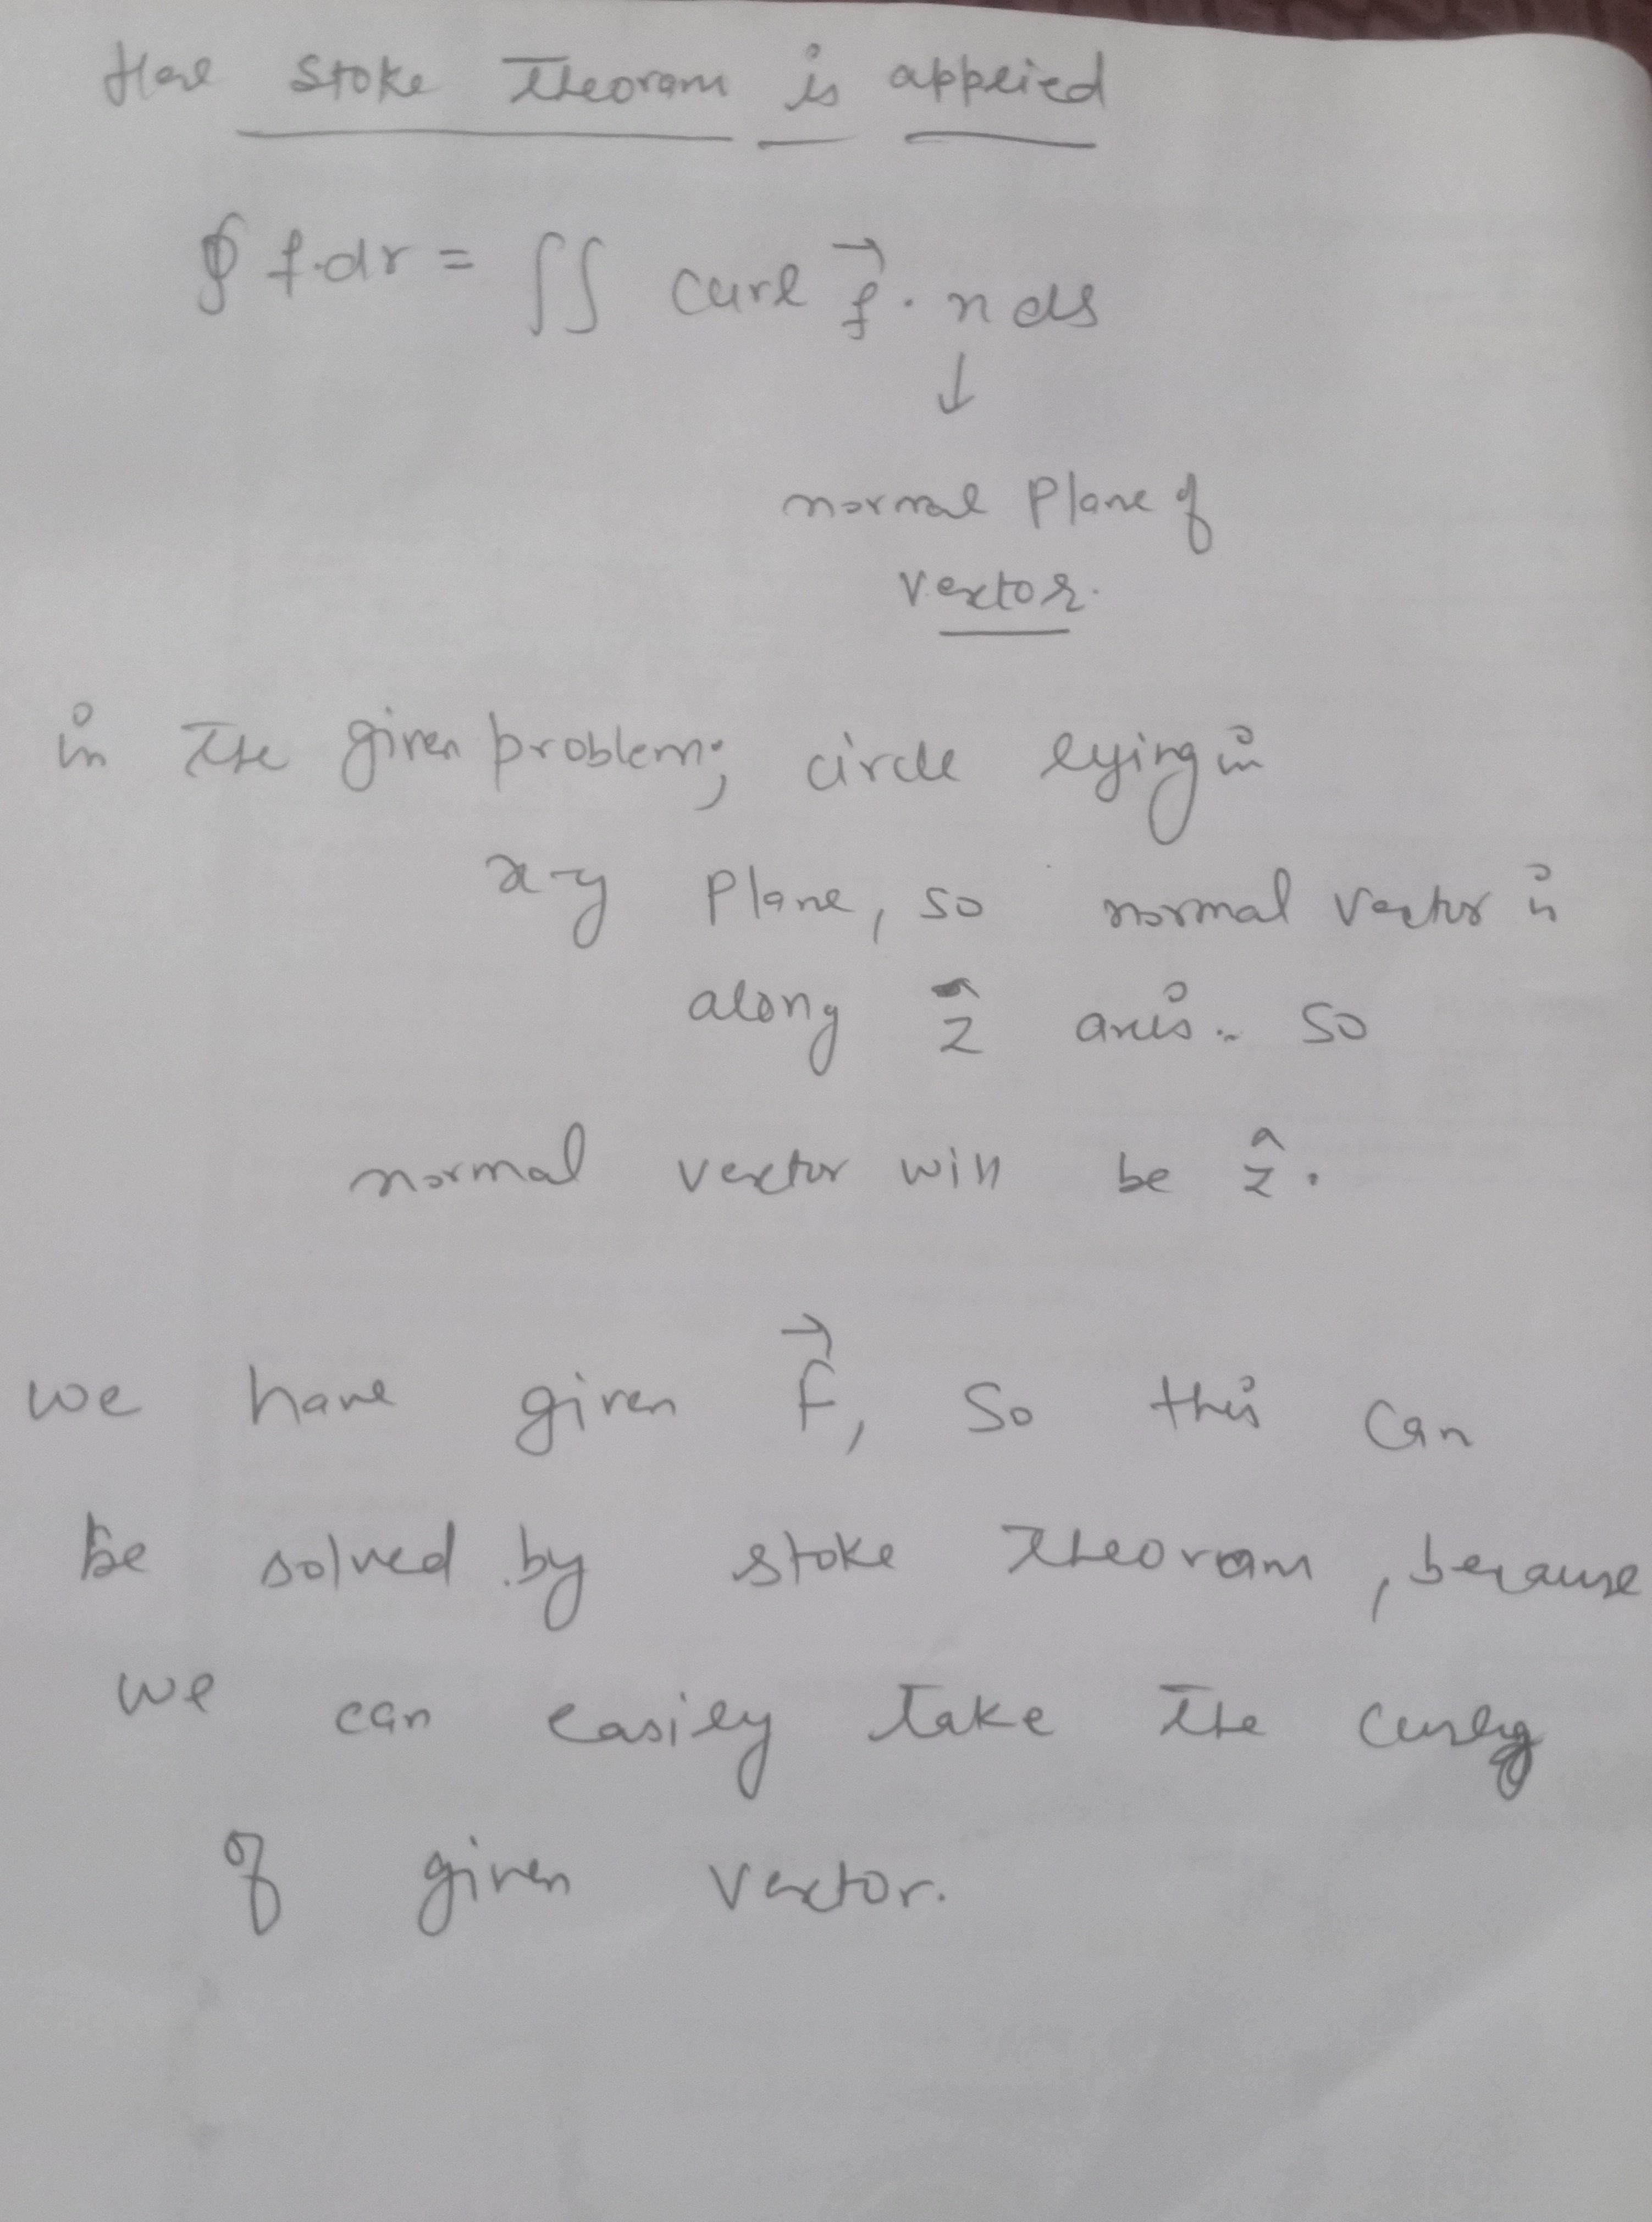 Here stoke Theoram is applied
∮ f.dr = ∬ curl f⃗ . n ds
↓
normal plane of
vector.
in the given problem; circle lying in
x-y plane, so normal vector is
along ẑ axis. so
normal vector will be ẑ.
we have given F⃗, So this can
be solved by stoke Theoram, because
we can easily take the curly
of given vector.